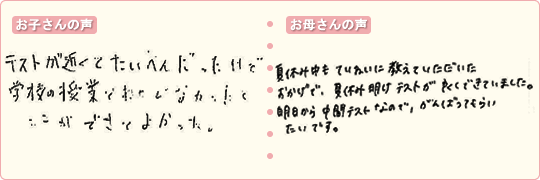 お子さんの声
テストが近くてたいへんだったけど
学校の授業でわからなかったと
ころができてよかった。
お母さんの声
夏休み中もていねいに教えていただいた
おかげで、夏休み明けテストが良くできていました。
明日から中間テストなので、がんばってもらい
たいです。